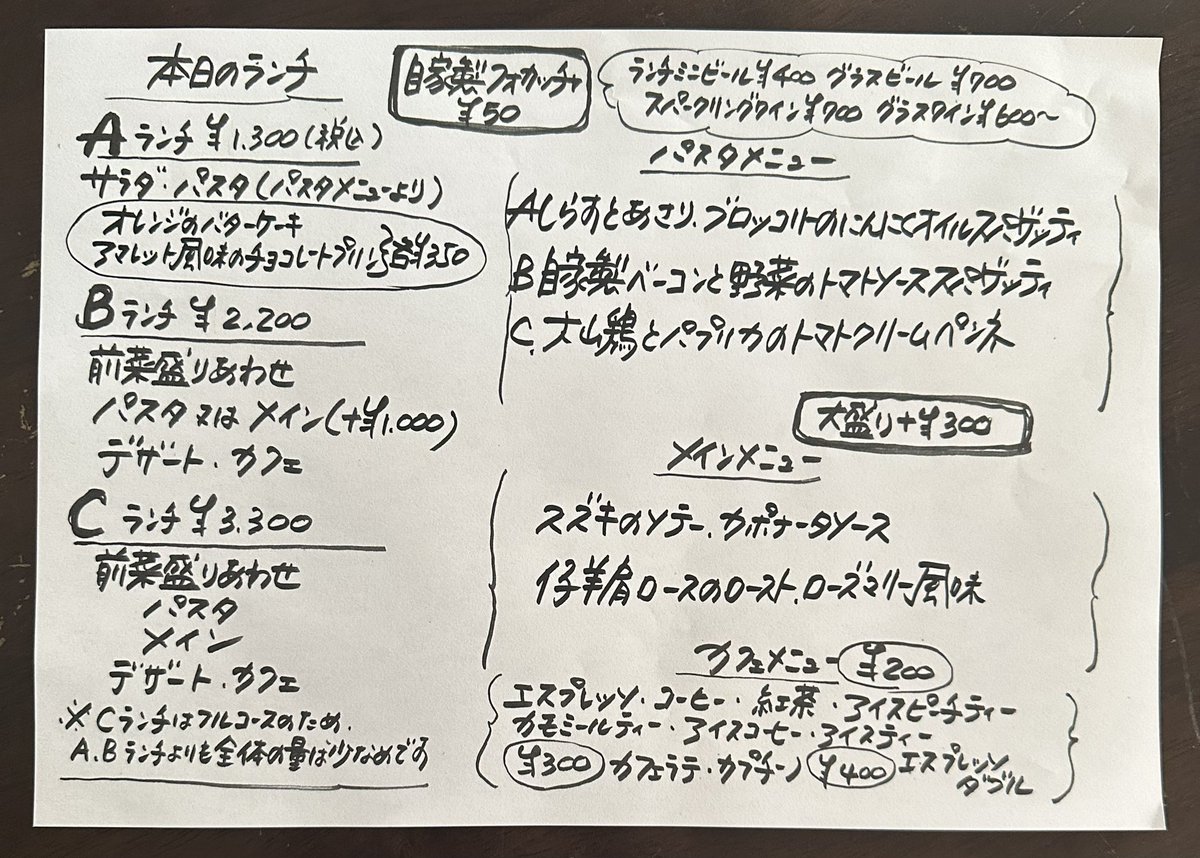 本日のランチ
Aランチ ¥1,300(税込)
サラダ・パスタ(パスタメニューより)
オレンジのバターケーキ
アマレット風味のチョコレートプリン}各¥350
Bランチ ¥2,200
前菜盛りあわせ
パスタ又はメイン(+¥1,000)
デザート・カフェ
Cランチ ¥3,300
前菜盛りあわせ
パスタ
メイン
デザート・カフェ
※Cランチはフルコースのため、
A.Bランチよりも全体の量は少なめです
自家製フォカッチャ
¥50
ランチミニビール¥400 グラスビール ¥700
スパークリングワイン¥700 グラスワイン¥600〜
パスタメニュー
Aしらすとあさり、ブロッコリーのにんにくオイルスパゲッティ
B自家製ベーコンと野菜のトマトソーススパゲッティ
C.大山鶏とパプリカのトマトクリームペンネ
大盛り+¥300
メインメニュー
スズキのソテー、カポナータソース
仔羊肩ロースのロースト、ローズマリー風味
カフェメニュー ¥200
エスプレッソ・コーヒー・紅茶・アイスピーチティー
カモミールティー・アイスコーヒー・アイスティー
¥300 カフェラテ・カプチーノ ¥400 エスプレッソ
ダブル